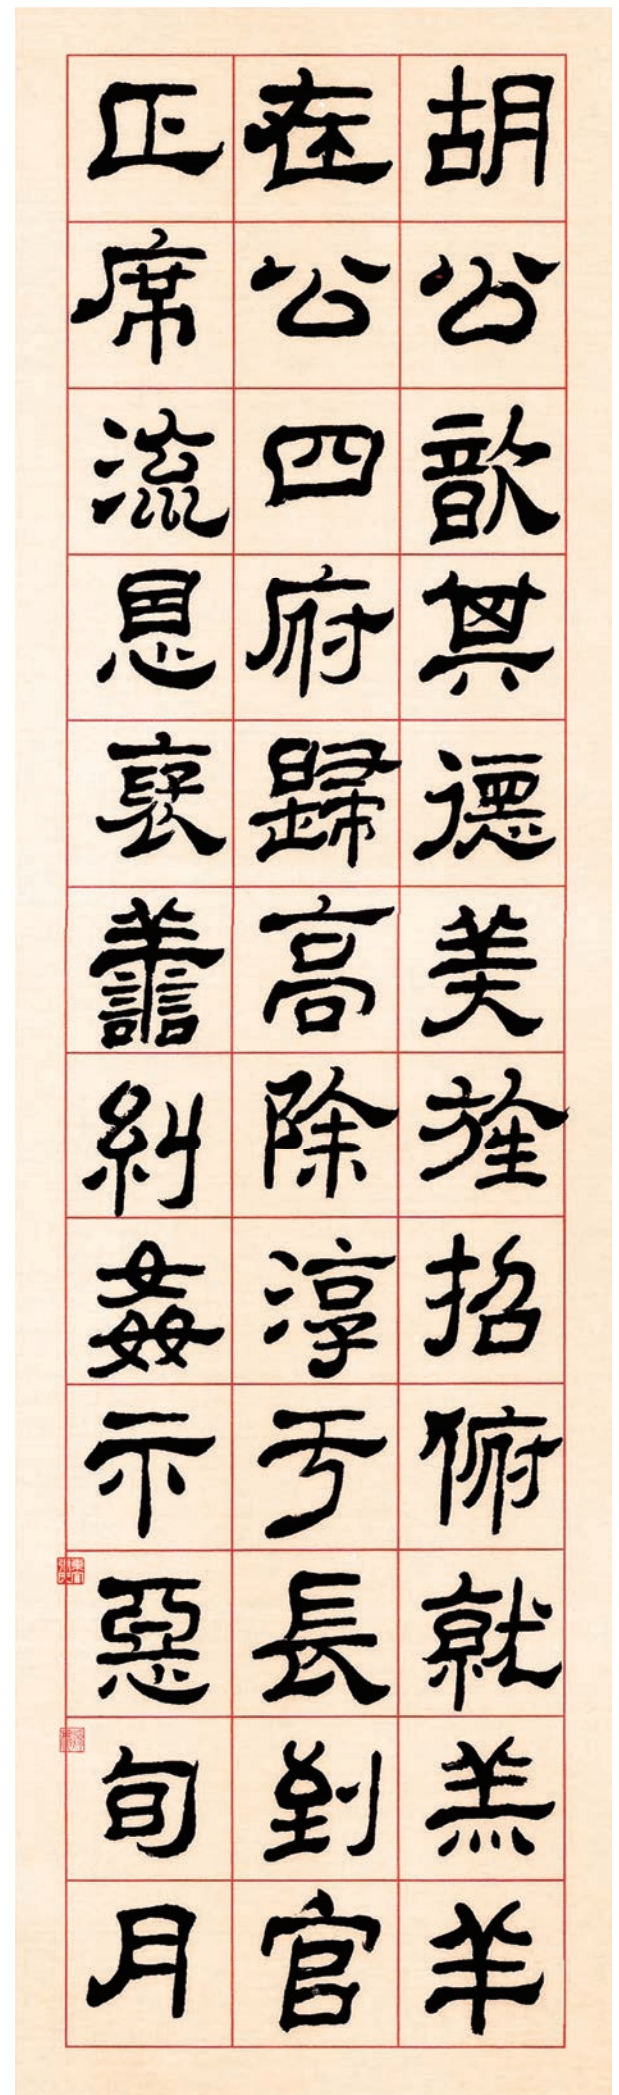 胡公歆其德美旌招俯就羔羊
在公四府歸高除淳于長到官
正席流恩褒譱糾姦示惡旬月